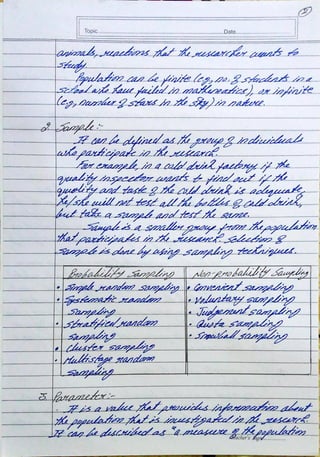 ②
Topic
Date
animals, reactions that the researcher wants to
study.
Population can be finite (eg, no. of students in a
school who have failed in mathematics), or infinite
(eg, number of stars in the sky) in nature.
2. Sample:-
It can be defined as the group of individuals
who participate in the research.
For example, in a cold drink factory if the
quality inspector wants to find out if the
quality and taste of the cold drink is adequate,
he/she will not test all the bottles of cold drink,
but take a sample and test the same.
Sample is a smaller group from the population
that participates in the research. Selection of
sample is done by using sampling techniques.
Probability Sampling | Non-probability Sampling
• Simple random sampling | • Convenient sampling
• Systematic random | • Voluntary sampling
sampling | • Judgement sampling
• Stratified random | • Quota sampling
sampling | • Snowball sampling
• Cluster sampling
• Multistage random
sampling
3. Parameter:-
It is a value that provides information about
the population that is investigated in the research.
It can be described as "a measure of the population
Teacher's Sign